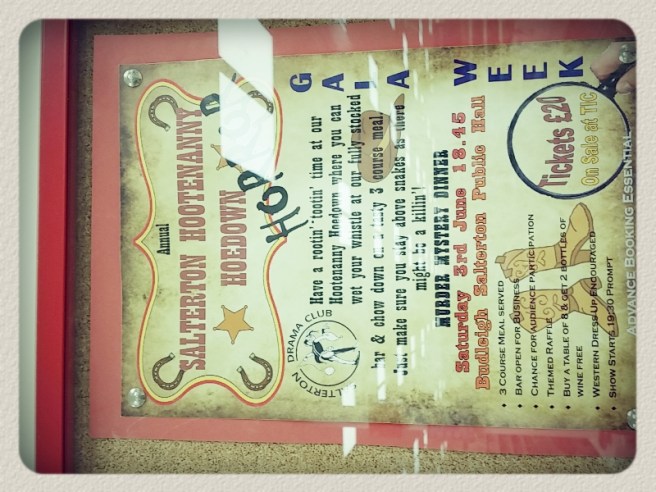 Annual
SALTERTON HOOTENANNY
HOEDOWN
HORROR
GALA WEEK
Have a rootin' tootin' time at our
Hootenanny Hoedown where you can
wet your whistle at our fully stocked
bar & chow down on a tasty 3 course meal
Just make sure you stay above snakes as there
might be a killin'!
SALTERTON DRAMA CLUB
MURDER MYSTERY DINNER
Saturday 3rd June 18.45
Budleigh Salterton Public Hall
• 3 COURSE MEAL SERVED
• BAR OPEN FOR BUSINESS
• CHANCE FOR AUDIENCE PARTICIPATION
• THEMED RAFFLE
• BUY A TABLE OF 8 & GET 2 BOTTLES OF
WINE FREE
• WESTERN DRESS UP ENCOURAGED
• SHOW STARTS 19:30 PROMPT
Tickets £20
On Sale at TIC
ADVANCE BOOKING ESSENTIAL